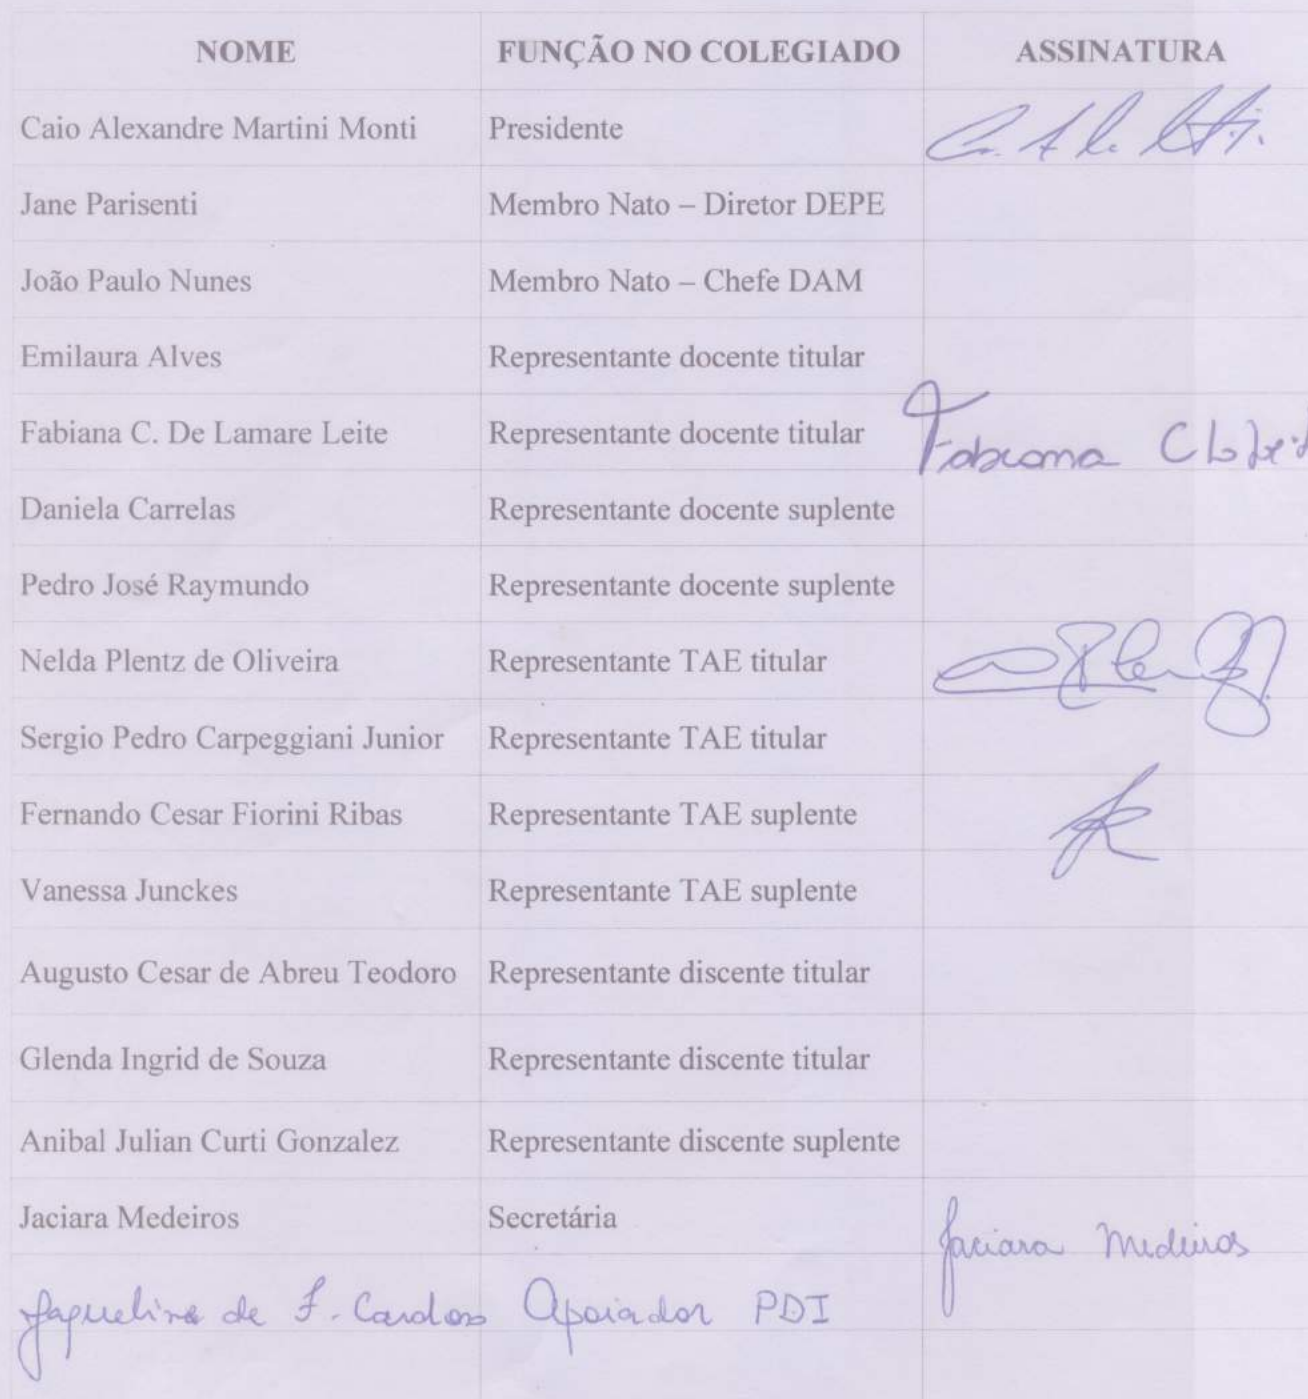 NOME FUNÇÃO NO COLEGIADO ASSINATURA
Caio Alexandre Martini Monti Presidente
Jane Parisenti Membro Nato – Diretor DEPE
João Paulo Nunes Membro Nato – Chefe DAM
Emilaura Alves Representante docente titular
Fabiana C. De Lamare Leite Representante docente titular Fabiana C
Daniela Carrelas Representante docente suplente
Pedro José Raymundo Representante docente suplente
Nelda Plentz de Oliveira Representante TAE titular
Sergio Pedro Carpeggiani Junior Representante TAE titular
Fernando Cesar Fiorini Ribas Representante TAE suplente
Vanessa Junckes Representante TAE suplente
Augusto Cesar de Abreu Teodoro Representante discente titular
Glenda Ingrid de Souza Representante discente titular
Anibal Julian Curti Gonzalez Representante discente suplente
Jaciara Medeiros Secretária Jaciara Medeiros
Jaqueline de F. Cardoso Apoiador PDI